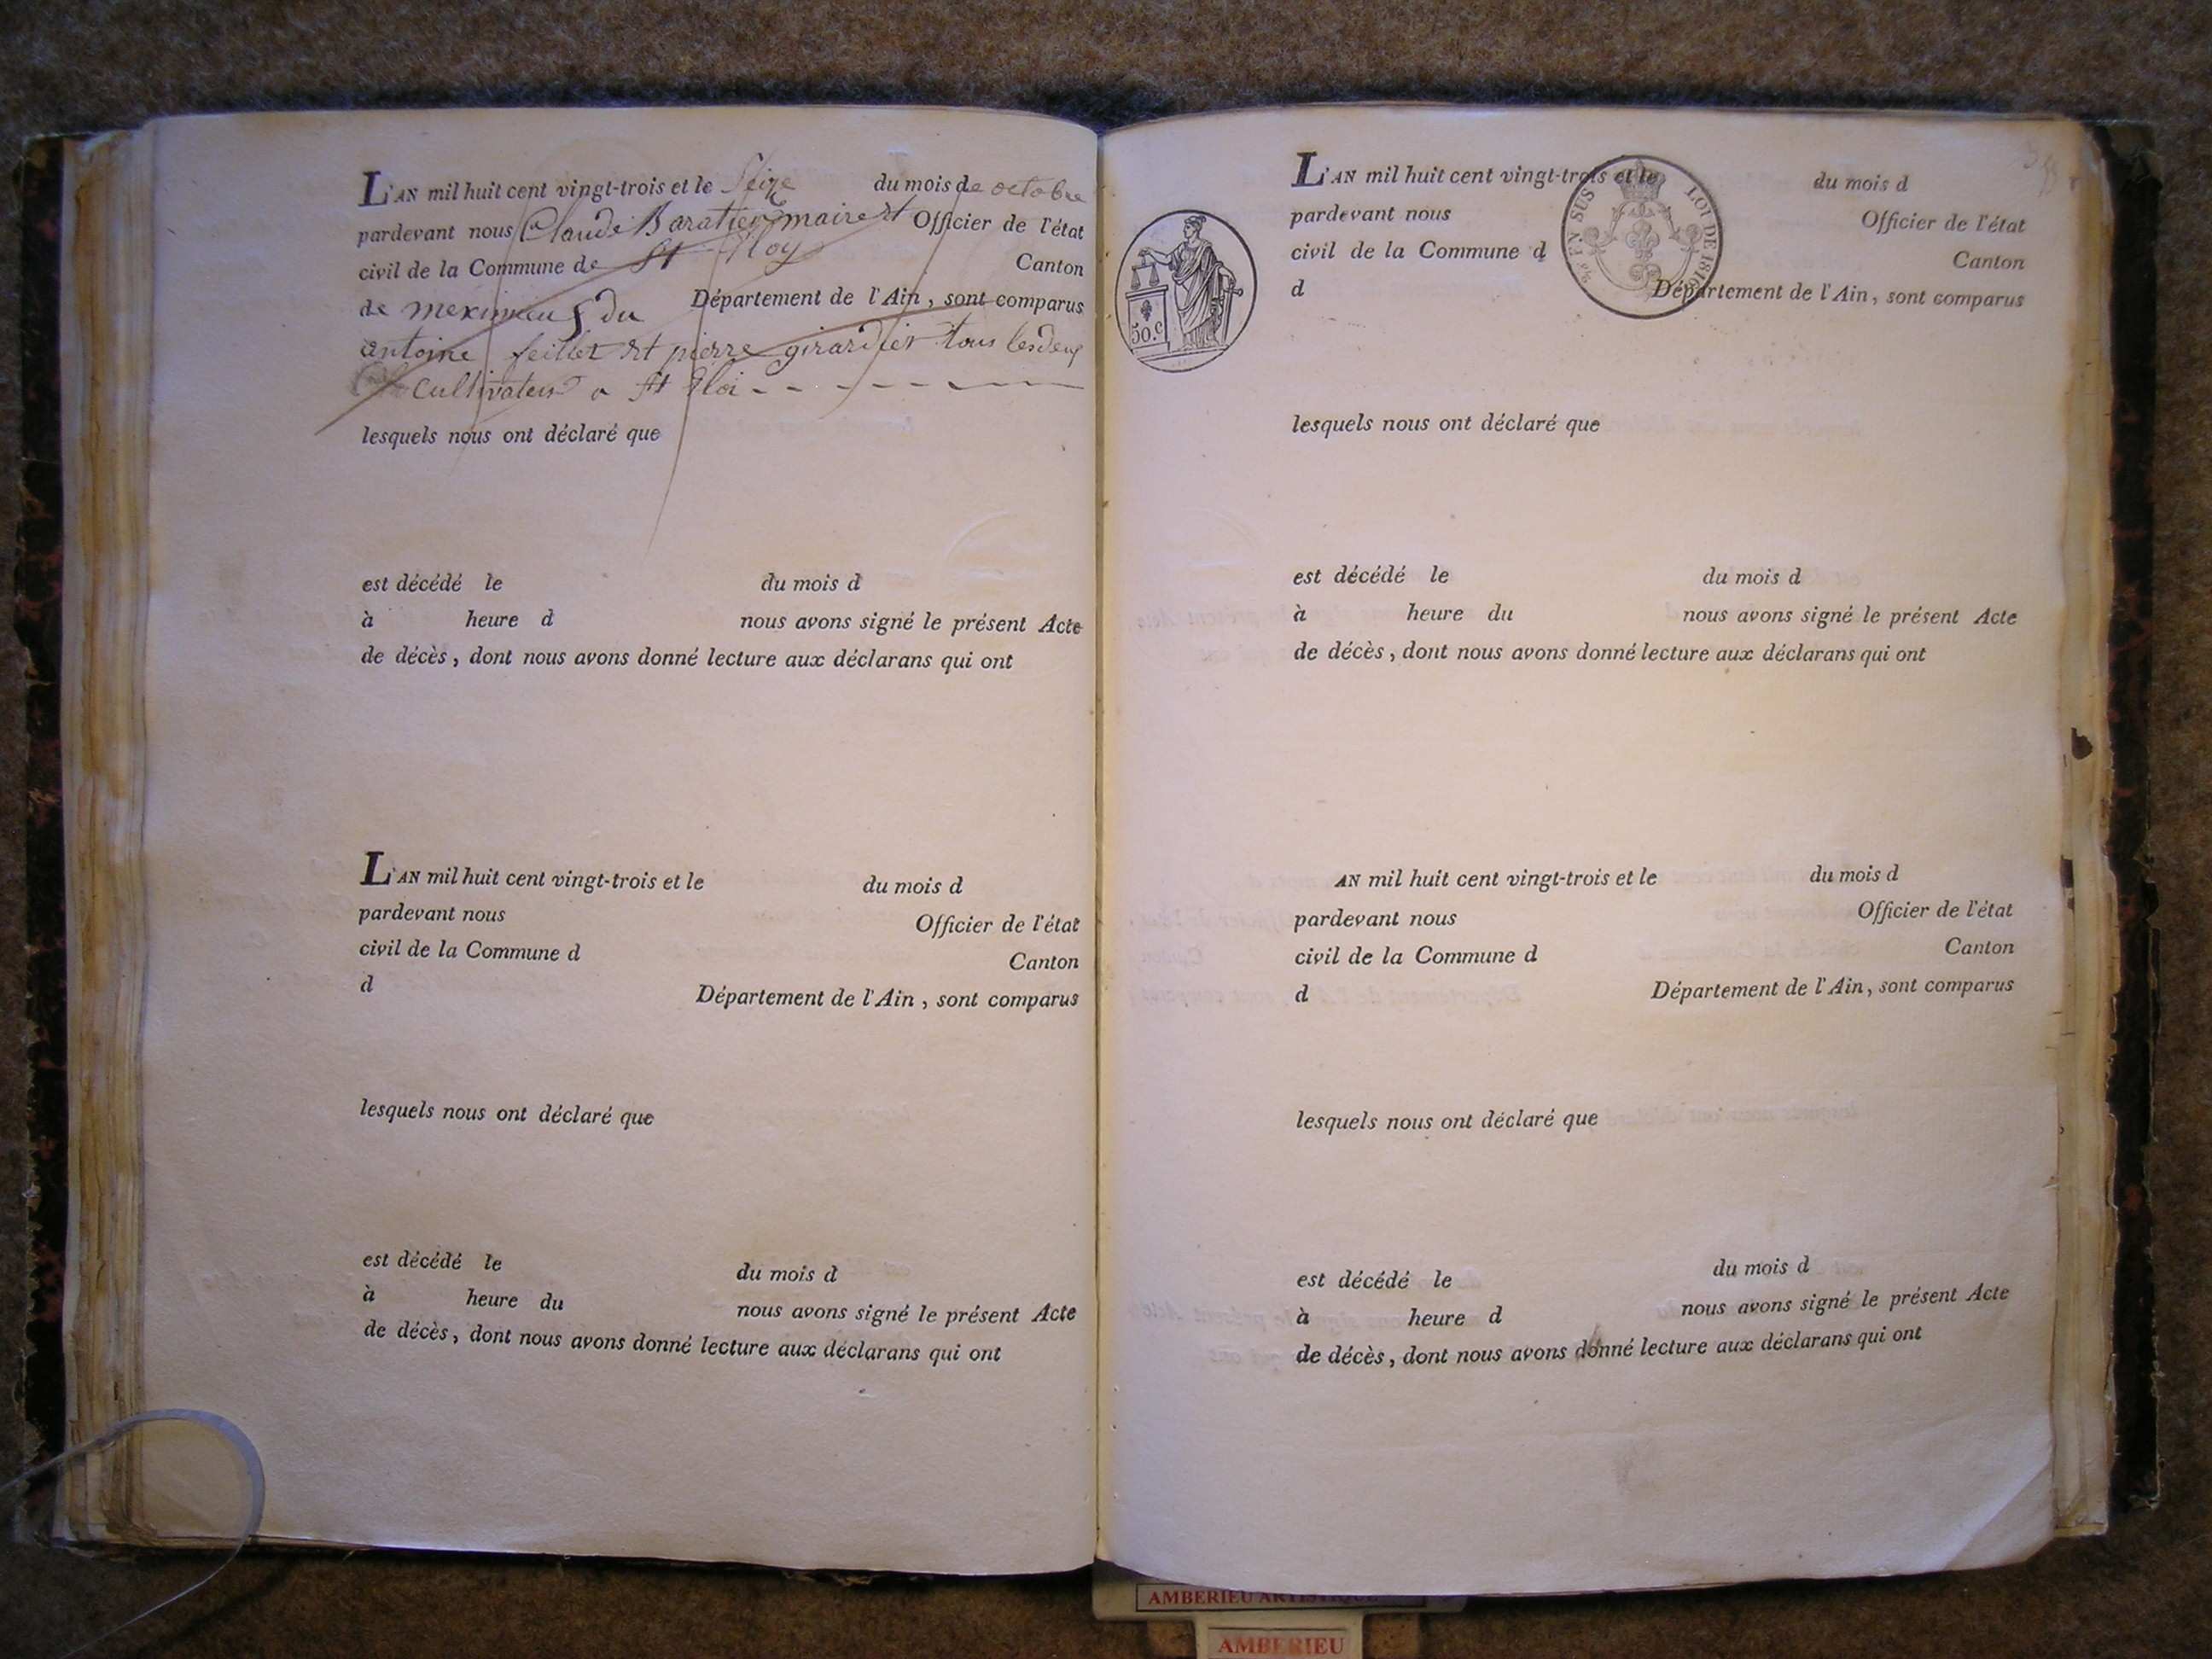 L'AN mil huit cent vingt-trois et le Seize du mois de octobre
pardevant nous Claude Baratier maire et Officier de l'état
civil de la Commune de St Eloy Canton
de meximieux du Département de l'Ain, sont comparus
antoine feillet et pierre girardier tous les deux
cultivateurs a St Eloi
lesquels nous ont déclaré que
est décédé le du mois d
à heure d nous avons signé le présent Acte
de décès, dont nous avons donné lecture aux déclarans qui ont
L'AN mil huit cent vingt-trois et le du mois d
pardevant nous Officier de l'état
civil de la Commune d Canton
d Département de l'Ain, sont comparus
lesquels nous ont déclaré que
est décédé le du mois d
à heure du nous avons signé le présent Acte
de décès, dont nous avons donné lecture aux déclarans qui ont
L'AN mil huit cent vingt-trois et le du mois d
pardevant nous Officier de l'état
civil de la Commune d Canton
d Département de l'Ain, sont comparus
EN SUS LOI DE 1816
50.c
lesquels nous ont déclaré que
est décédé le du mois d
à heure du nous avons signé le présent Acte
de décès, dont nous avons donné lecture aux déclarans qui ont
AN mil huit cent vingt-trois et le du mois d
pardevant nous Officier de l'état
civil de la Commune d Canton
d Département de l'Ain, sont comparus
lesquels nous ont déclaré que
est décédé le du mois d
à heure d nous avons signé le présent Acte
de décès, dont nous avons donné lecture aux déclarans qui ont
AMBERIEU ARTISTIQUE
AMBERIEU